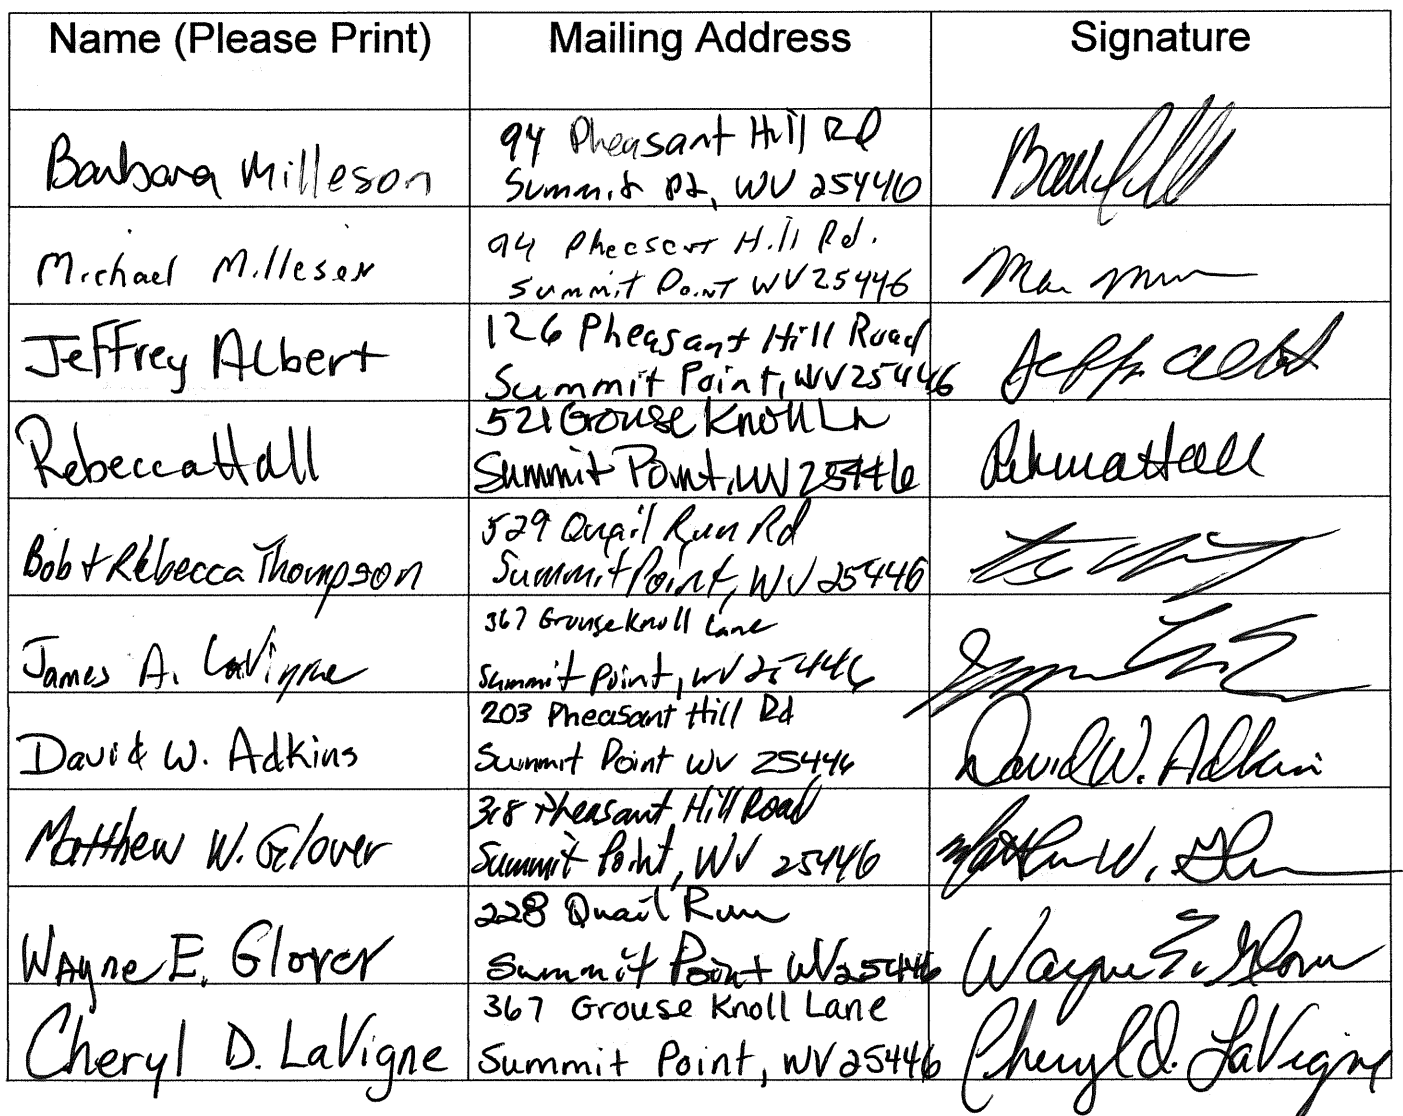 Name (Please Print) Mailing Address Signature
Barbara Milleson
94 Pheasant Hill Rd
Summit Pt, WV 25446
Michael Milleson
94 Pheasant Hill Rd.
Summit Point WV 25446
Jeffrey Albert
126 Pheasant Hill Road
Summit Point, WV 25446
Rebecca Hall
521 Grouse Knoll Ln
Summit Point, WV 25446
Rebecca Hall
Bob + Rebecca Thompson
529 Quail Run Rd
Summit Point, WV 25446
James A. LaVigne
367 Grouse Knoll Lane
Summit Point, WV 25446
David W. Adkins
203 Pheasant Hill Rd
Summit Point WV 25446
David W. Adkins
Matthew W. Glover
318 Pheasant Hill Road
Summit Point, WV 25446
Matthew W. Glover
Wayne E. Glover
228 Quail Run
Summit Point WV 25446
Wayne E. Glover
Cheryl D. LaVigne
367 Grouse Knoll Lane
Summit Point, WV 25446
Cheryl D. LaVigne